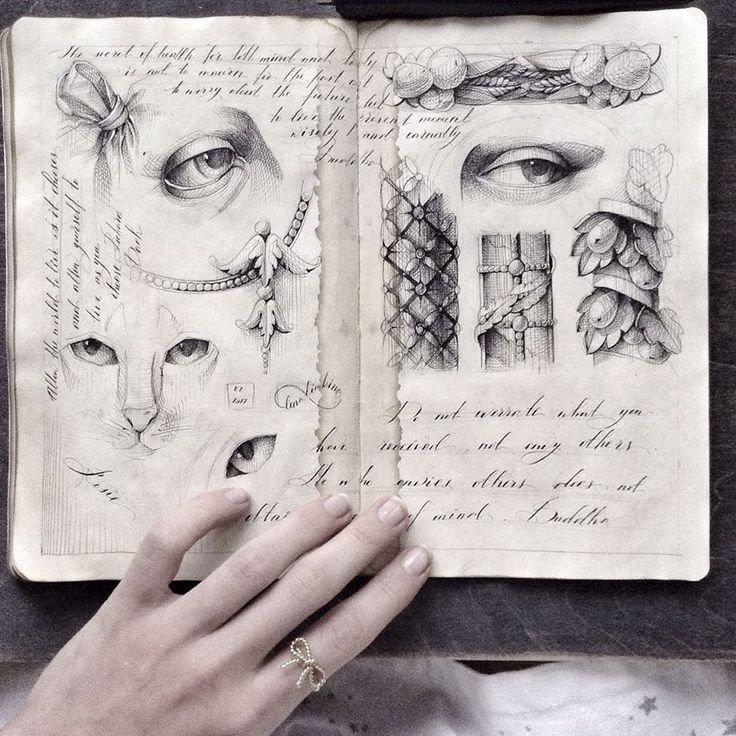 The secret of health for both mind and body
is not to mourn for the past, not
to worry about the future, but
to live the present moment
wisely and earnestly
Buddha
Allow the world to live as it chooses
and allow yourself to
live as you
choose
02
2017
Isis
Do not overrate what you
have received, not envy others
He who envies others does not
obtain of mind. Buddha